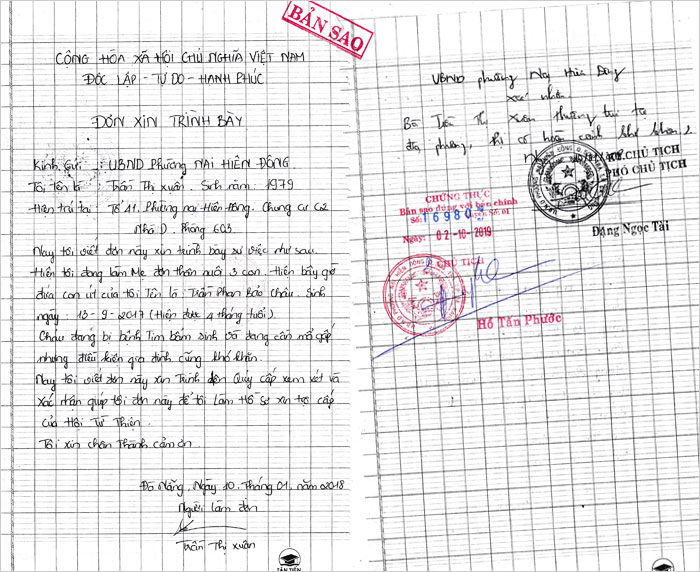 BẢN SAO
CỘNG HÒA XÃ HỘI CHỦ NGHĨA VIỆT NAM
ĐỘC LẬP - TỰ DO - HẠNH PHÚC
ĐƠN XIN TRÌNH BÀY
Kính Gửi : UBND Phường NẠI HIÊN ĐÔNG
Tôi tên là : Trần Thị Xuân. Sinh năm : 1979
Hiện trú tại : Tổ 41. Phường nại Hiên Đông. Chung cư C2
Nhà D. Phòng 603
Nay tôi viết đơn này xin trình bày sự việc như sau.
Hiện tôi đang làm Mẹ đơn thân nuôi 3 con. Hiện bây giờ
đứa con út của tôi Tên là : Trần Phan Bảo Châu. Sinh
ngày : 13-9-2017 (Hiện được 4 tháng tuổi)
Cháu đang bị bệnh Tim bẩm sinh và đang cần mổ gấp
nhưng điều kiện gia đình cũng khó khăn.
Nay tôi viết đơn này xin Trình đến Quý cấp xem xét và
xác nhận giúp tôi đơn này để tôi làm Hồ sơ xin trợ cấp
của Hội Từ Thiện.
Tôi xin chân Thành cảm ơn.
Đà Nẵng, Ngày 10. Tháng 01. năm 2018
Người làm đơn
Trần Thị Xuân
TÂN TIẾN
UBND phường Nại Hiên Đông
xác nhận
Bà Trần Thị Xuân thường trú tại
địa phương, thì có hoàn cảnh khó khăn
CHỦ TỊCH
PHÓ CHỦ TỊCH
Đặng Ngọc Tài
CHỨNG THỰC
Bản sao đúng với bản chính
Số: 16980 Quyển Số: 01
Ngày: 02-10-2019
CHỦ TỊCH
Hồ Tấn Phước